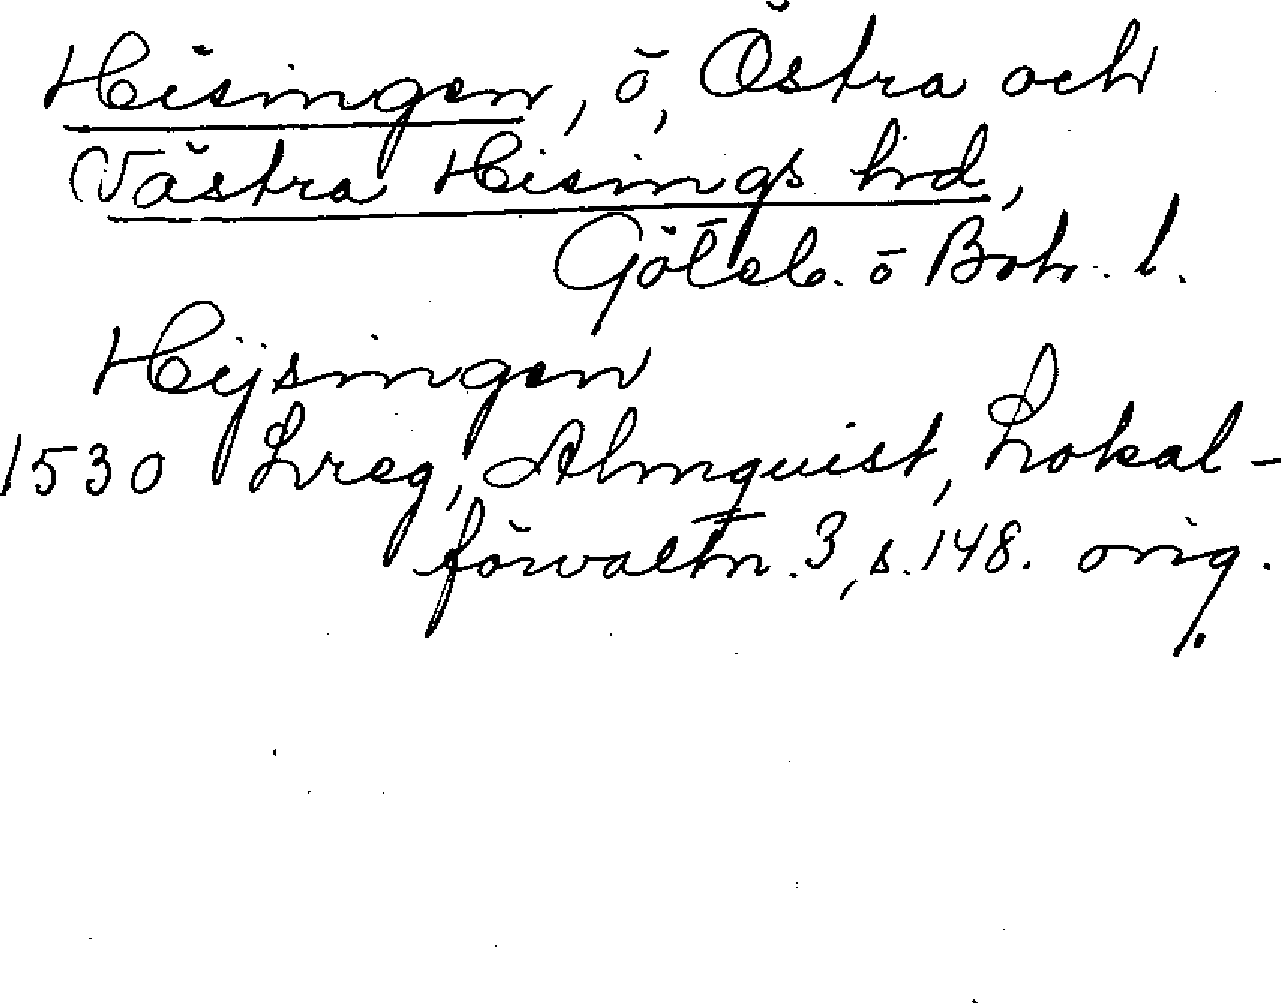 Hisingen, ö, Östra och
Västra Hisings hrd,
Göteb. o Boh. l.
Hijsingen
1530 Lreg, Almquist, Lokal-
förvaltn. 3, s. 148. orig.